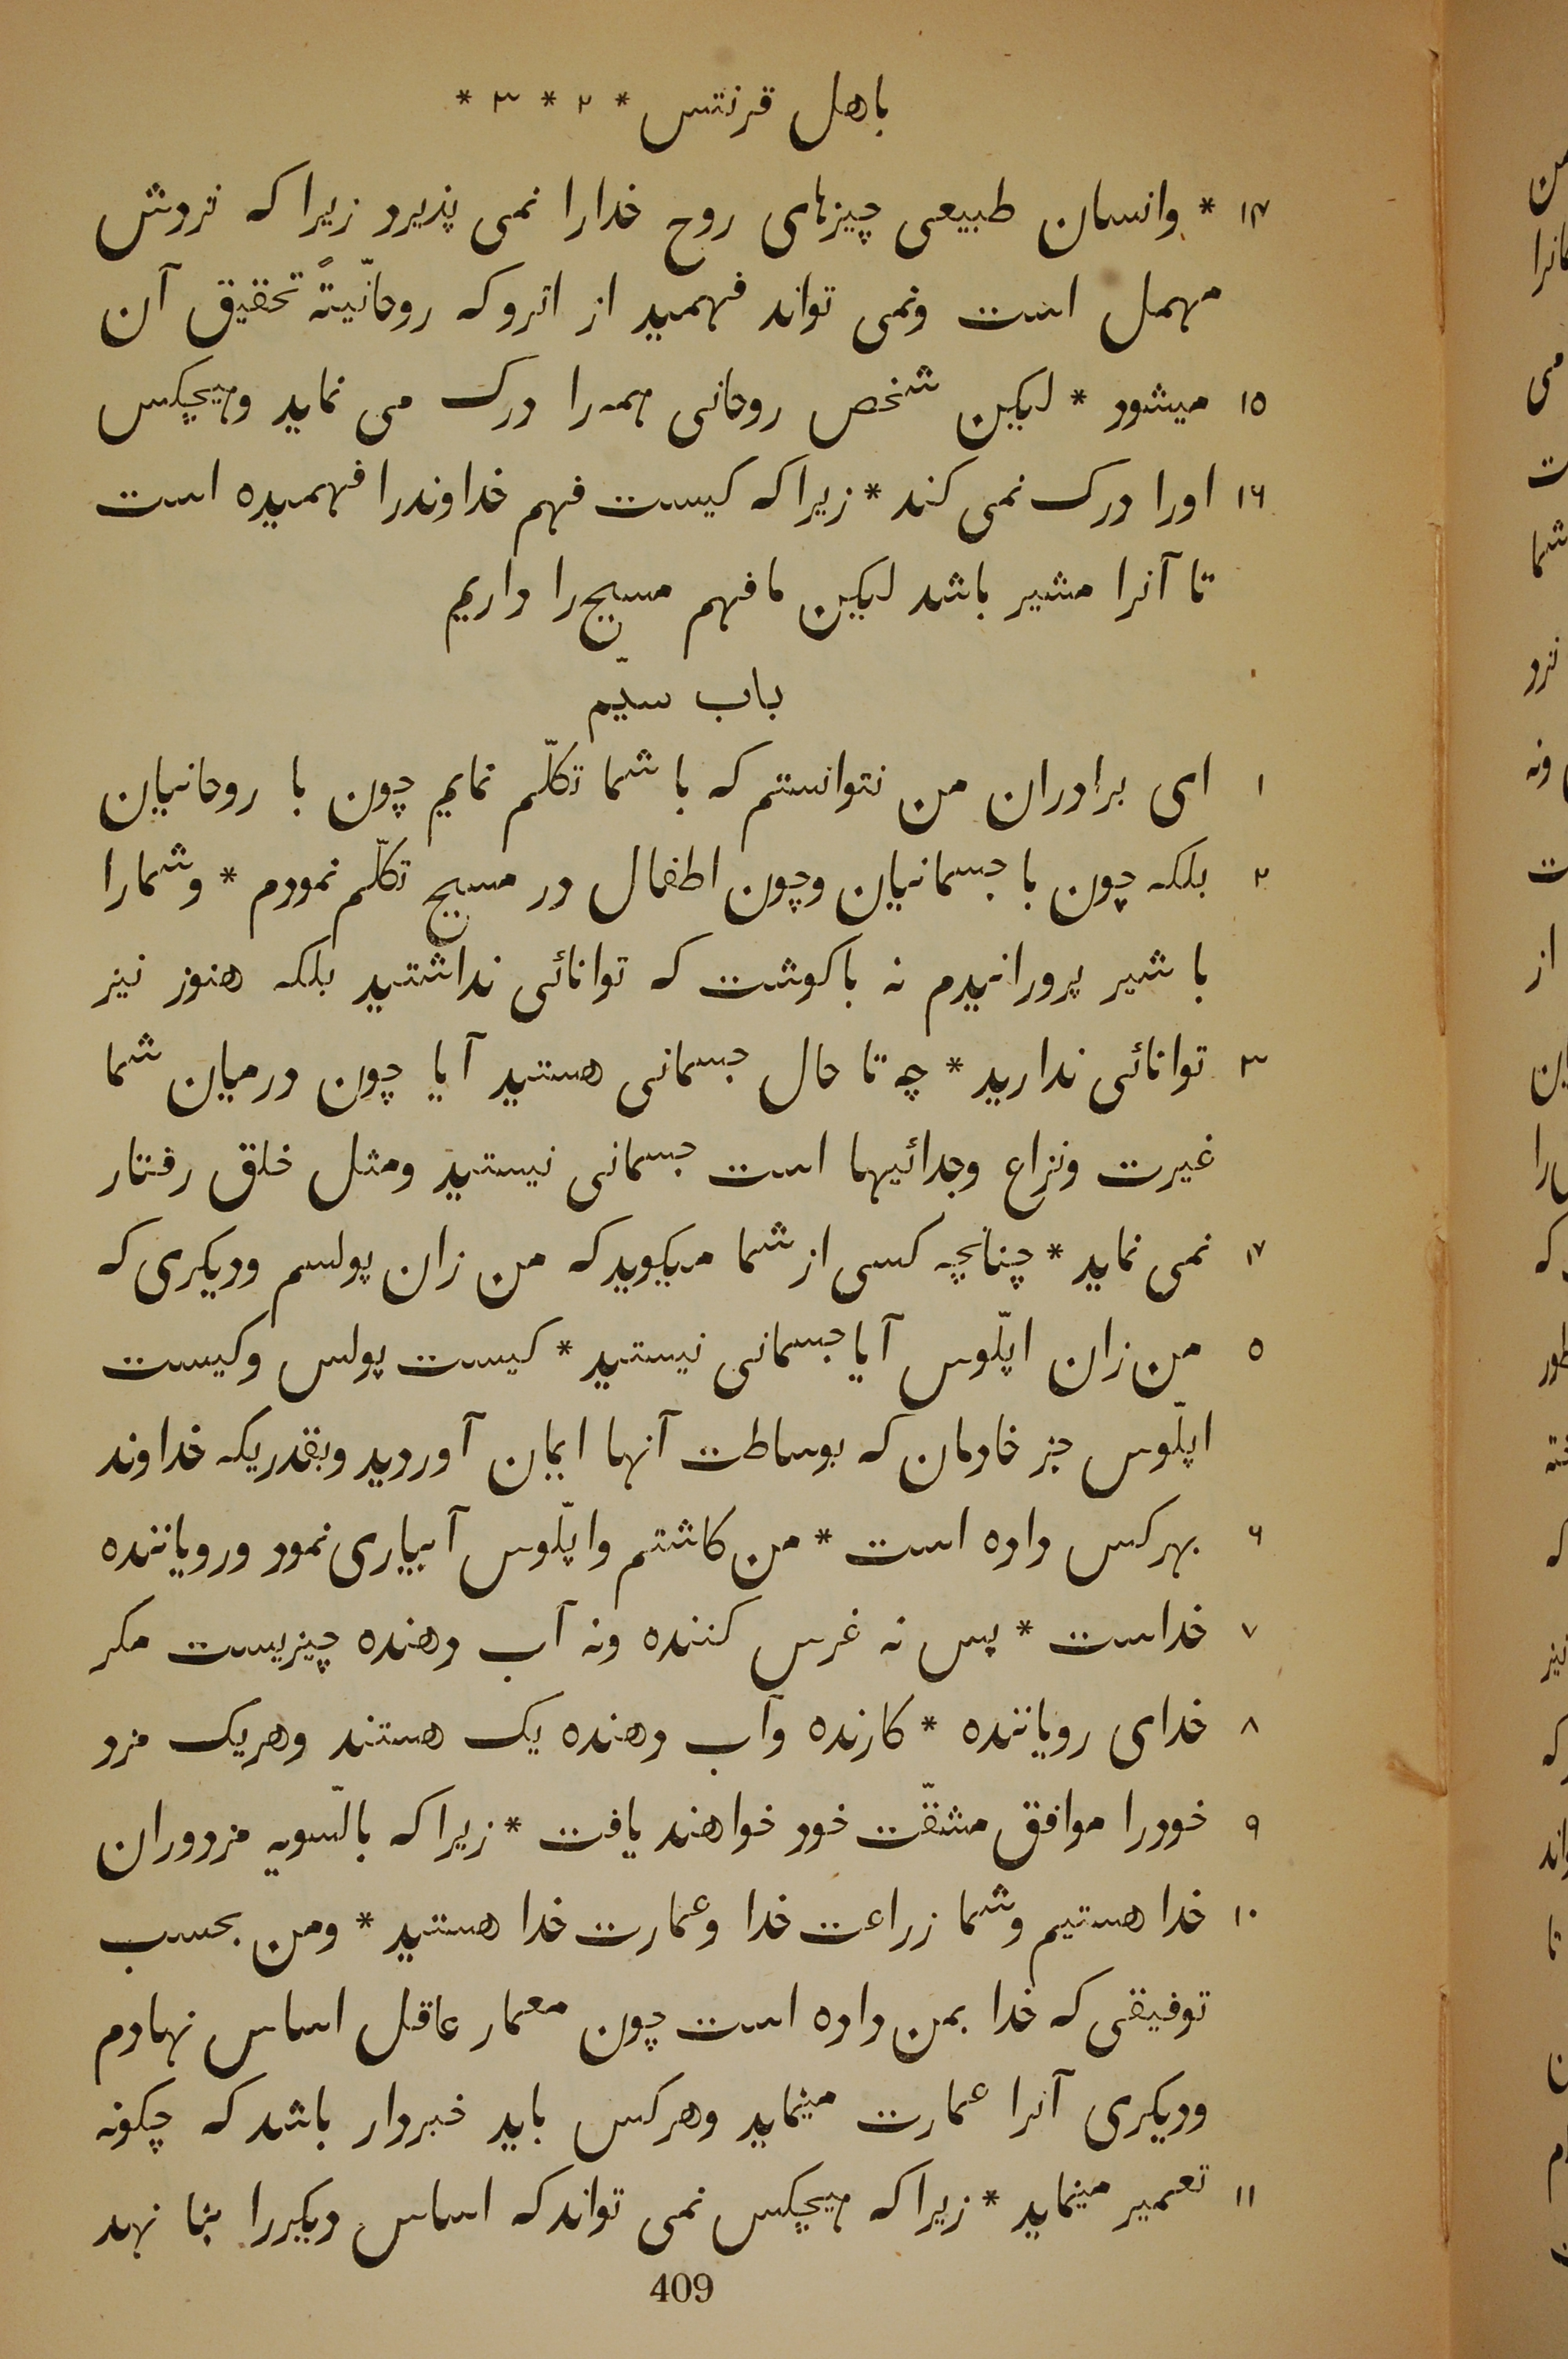 باهل قرنتس * ۲ * ۳ *
۱۴ * وانسان طبیعی چیزهای روح خدارا نمی پذیرد زیرا که نزدش
مهمل است ونمی تواند فهمید از انرو که روحانّیتهً تحقیق آن
۱۵ میشود * لیکن شخص روحانی همه را درک می نماید وهیچکس
۱۶ اورا درک نمی کند * زیرا که کیست فهم خداوندرا فهمیده است
تا آنرا مشیر باشد لیکن ما فهم مسیح را داریم
باب سیّم
۱ ای برادران من نتوانستم که با شما تکلّم نمایم چون با روحانیان
۲ بلکه چون با جسمانیان وچون اطفال در مسیح تکلّم نمودم * وشمارا
با شیر پرورانیدم نه باکوشت که توانائی نداشتید بلکه هنوز نیز
۳ توانائی ندارید * چه تا حال جسمانی هستید آیا چون درمیان شما
غیرت ونزاع وجدائیها است جسمانی نیستید ومثل خلق رفتار
۴ نمی نماید * چنانچه کسی از شما میکوید که من زان پولسم ودیکری که
۵ من زان اپلّوس آیا جسمانی نیستید * کیست پولس وکیست
اپلّوس جز خادمان که بوساطت آنها ایمان آوردید وبقدریکه خداوند
۶ بهرکس داده است * من کاشتم واپلّوس آبیاری نمود ورویاننده
۷ خداست * پس نه غرس کننده ونه آب دهنده چیزیست مکر
۸ خدای رویاننده * کارنده وآب دهنده یک هستند وهریک مزد
۹ خودرا موافق مشقّت خود خواهند یافت * زیرا که بالّسویه مزدوران
۱۰ خدا هستیم وشما زراعت خدا وعمارت خدا هستید * ومن بحسب
توفیقی که خدا بمن داده است چون معمار عاقل اساس نهادم
ودیکری آنرا عمارت مینماید وهرکس باید خبردار باشد که چکونه
۱۱ تعمیر مینماید * زیرا که هیچکس نمی تواند که اساس دیکررا بنا نهد
409